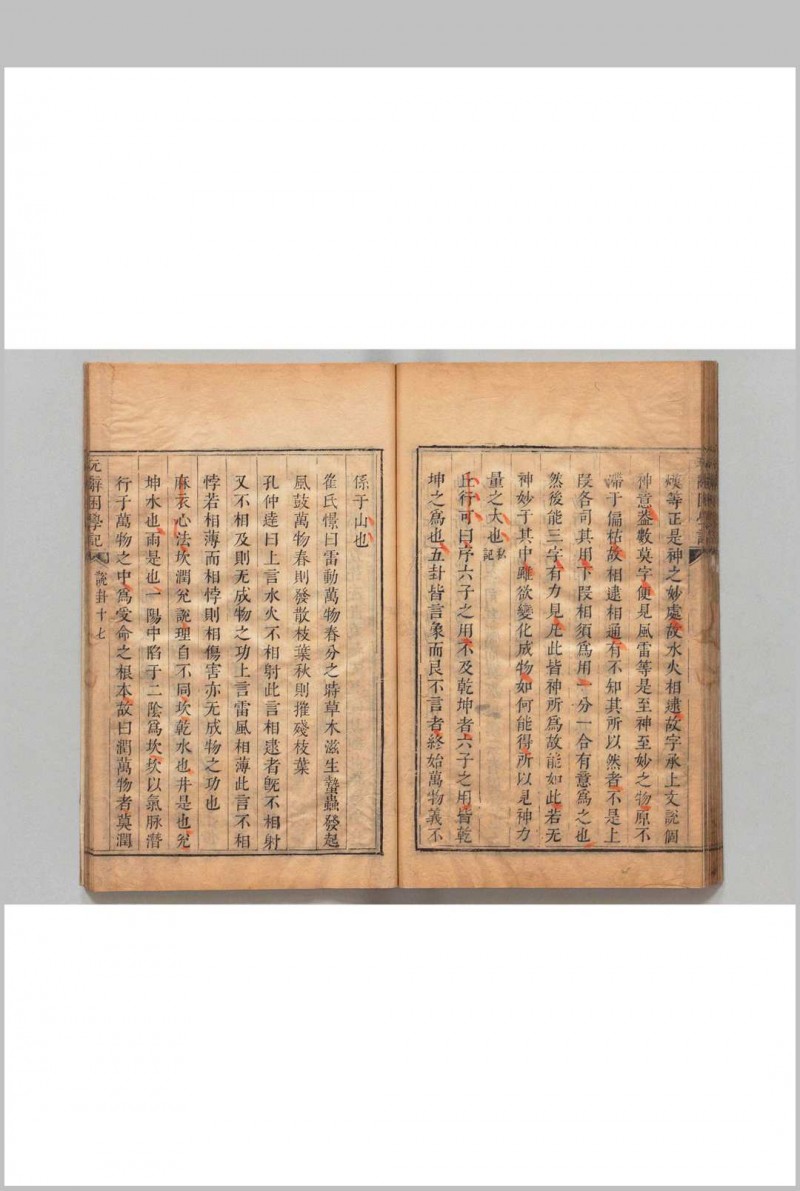 漠等正是神之妙處故水火相逮故字承上文說個
神意蓋數莫字便見風雷等是至神至妙之物原不
滯于偏枯故相逮相通有不知其所以然者不是上
段各司其用下段相須爲用一分一合有意爲之也
然後能三字有力見凡此皆神所爲故能如此若无
神妙于其中雖欲變化成物如何能得所以見神力
量之大也私記
丘行可曰序六子之用不及乾坤者六子之用皆乾
坤之爲也五卦皆言象而艮不言者終始萬物義不
係于山也
崔氏憬曰雷動萬物春分之時草木滋生蟄蟲發起
風鼓萬物春則發散枝葉秋則摧殘枝葉
孔仲達曰上言水火不相射此言相逮者旣不相射
又不相及則无成物之功上言雷風相薄此言不相
悖若相薄而相悖則相傷害亦无成物之功也
麻衣心法坎潤兌說理自不同坎乾水也井是也兌
坤水也雨是也一陽中陷于二陰爲坎坎以氣脉潛
行于萬物之中爲受命之根本故曰潤萬物者莫潤
玩辭困學記
說卦十七